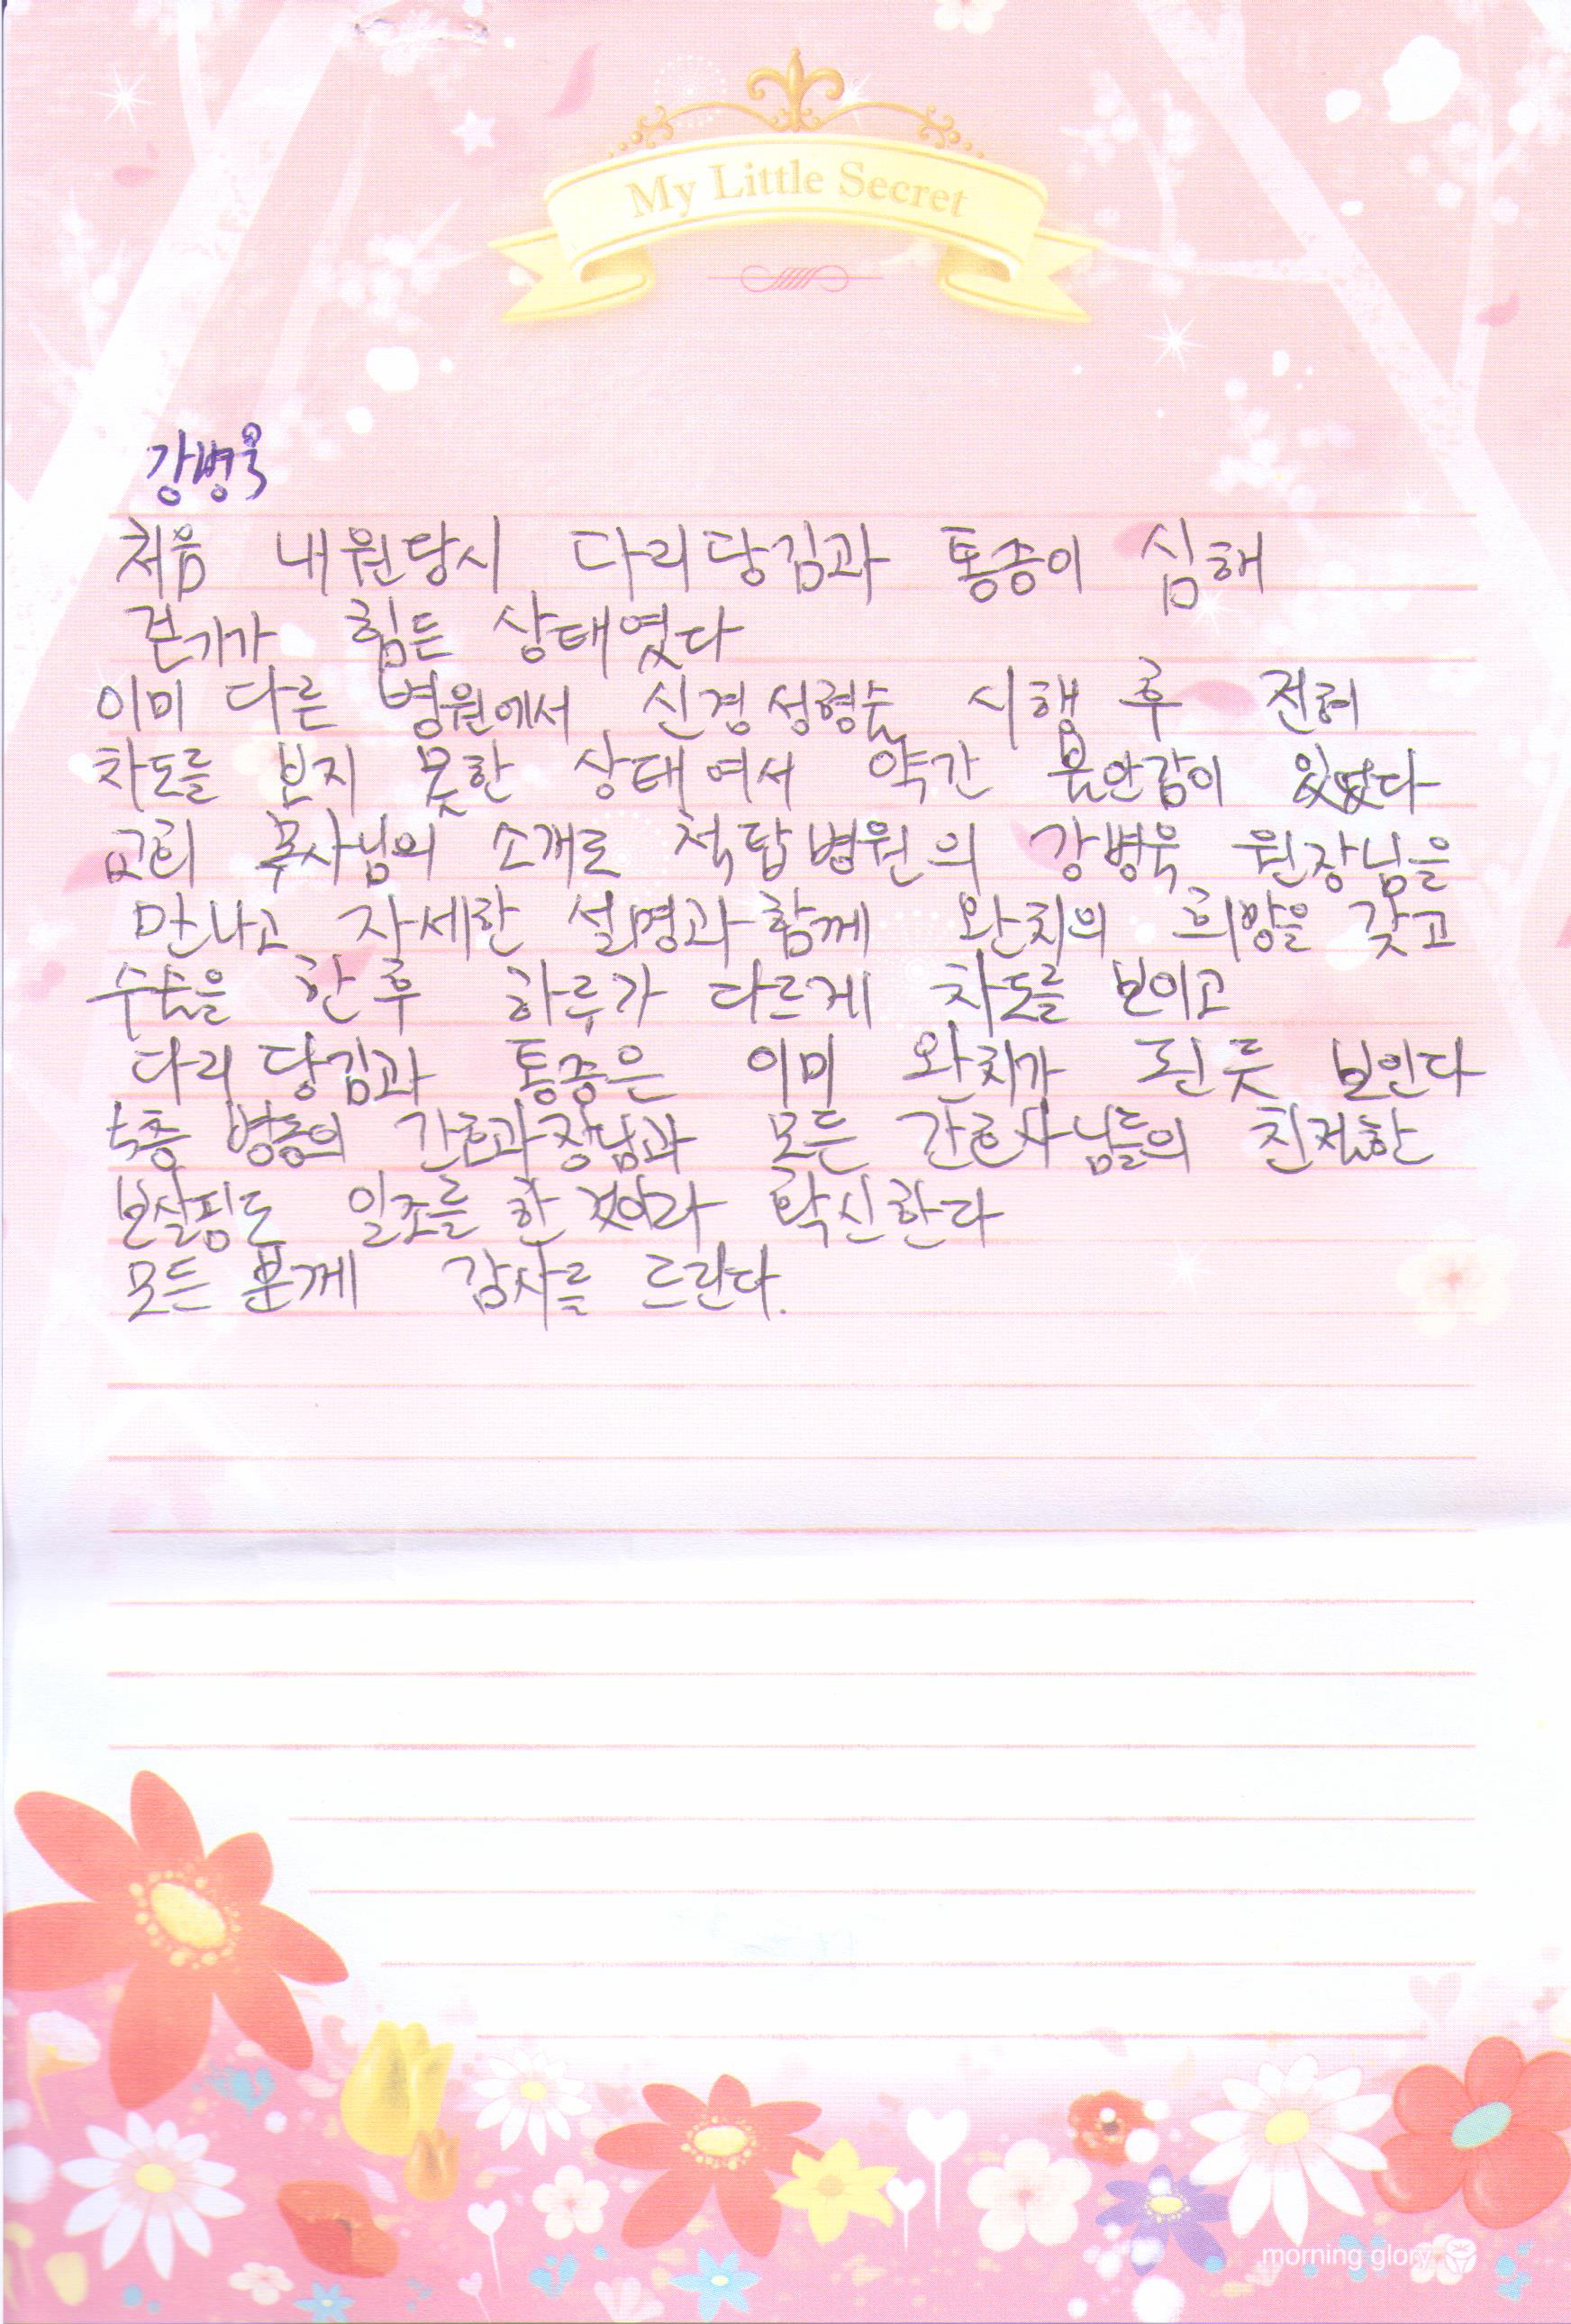 My Little Secret
강병욱
처음 내원당시 다리당김과 통증이 심해
걷기가 힘든 상태였다
이미 다른 병원에서 신경성형술 시행 후 전혀
차도를 보지 못한 상태여서 약간 불안감이 있었다
교회 목사님의 소개로 척탑병원의 강병욱 원장님을
만나고 자세한 설명과 함께 완치의 희망을 갖고
수술을 한 후 하루가 다르게 차도를 보이고
다리 당김과 통증은 이미 완치가 된 듯 보인다
5층 병동의 간호과장님과 모든 간호사님들의 친절한
보살핌도 일조를 한 것이라 확신한다
모든 분께 감사를 드린다.
morning glory